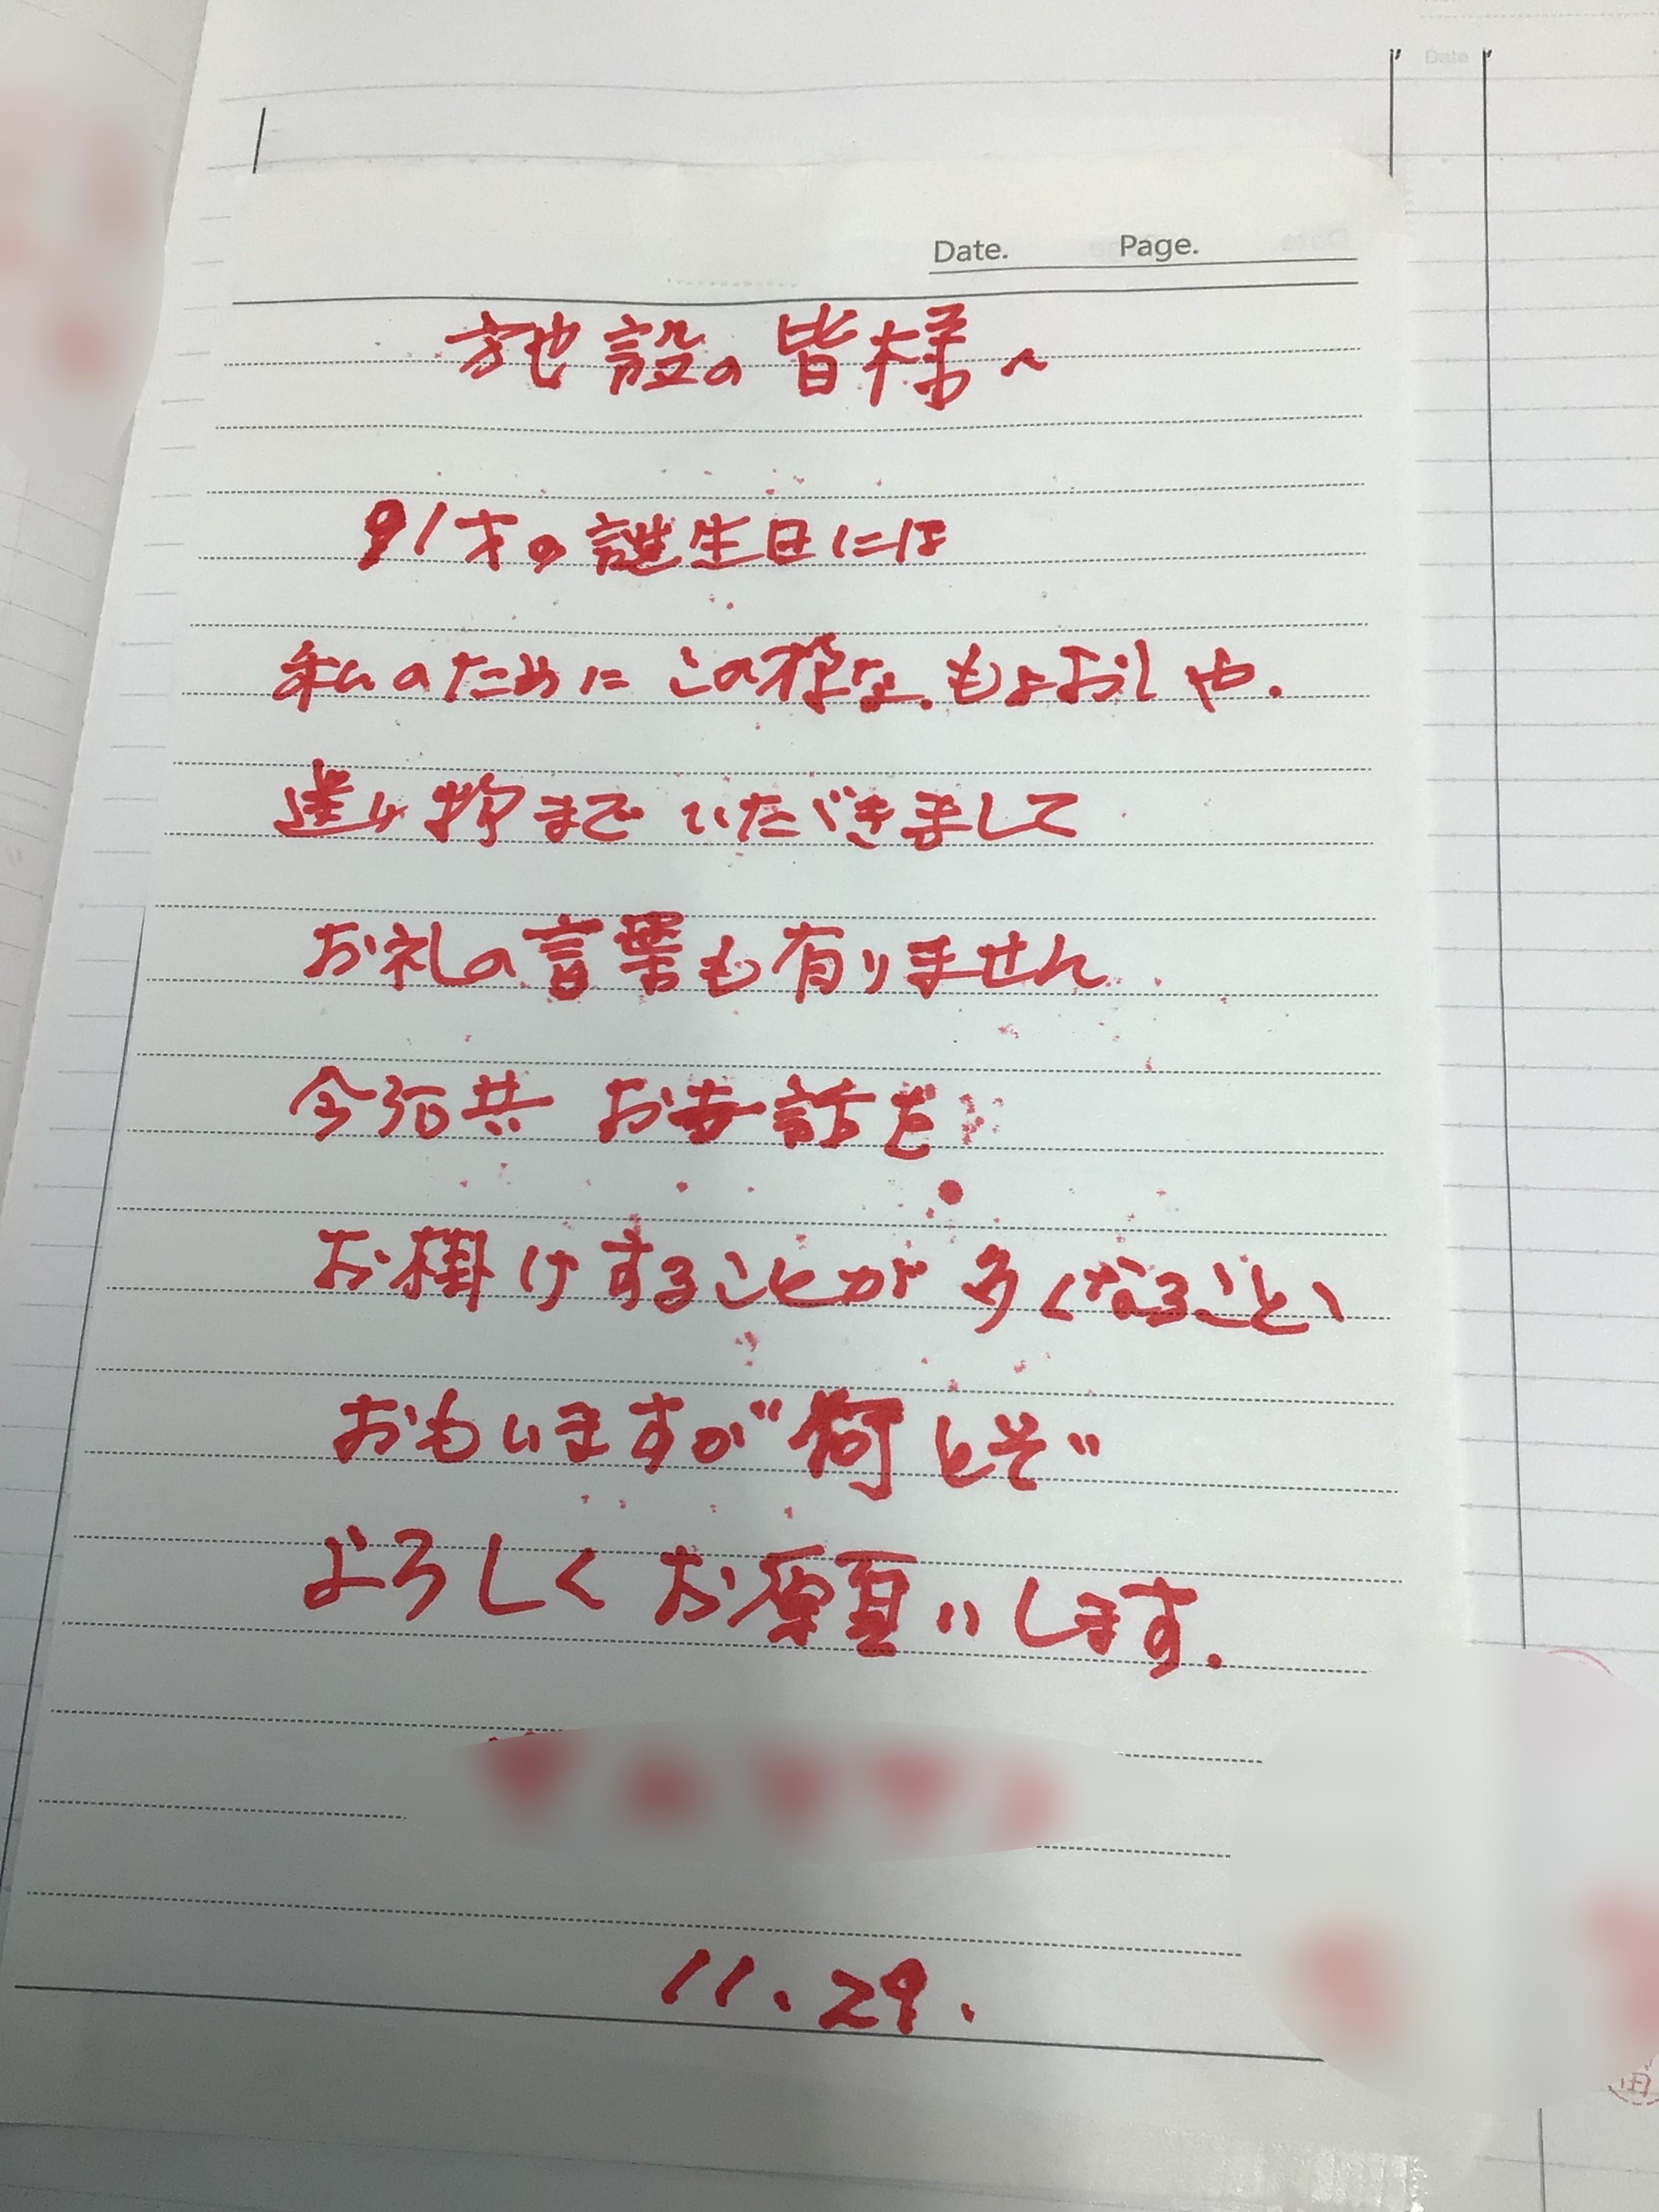 Date. Page.
施設の皆様へ
91才の誕生日には
私のために この様な.もよおしや.
送り物まで いただきまして
お礼の言葉も有りません
今後共 お世話を
お掛けすることが多くなること、
おもいますが"何とぞ"
よろしくお願いします.
11.29.